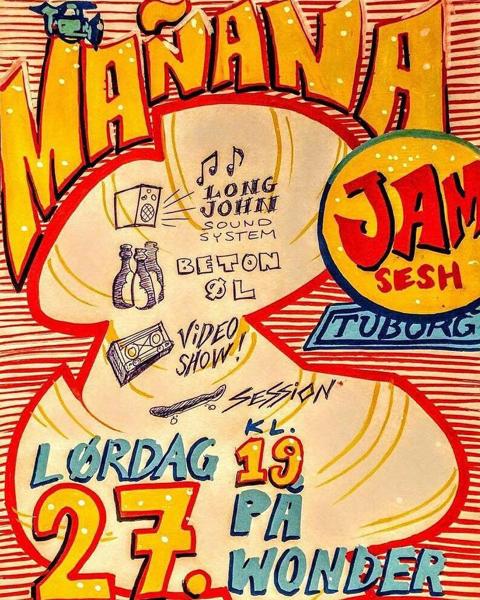 MAÑANA
JAM
SESH
TUBORG
LONG
JOHN
SOUND
SYSTEM
BETON
ØL
VIDEO
SHOW!
SESSION
LØRDAG
27.
KL.
19
PÅ
WONDER